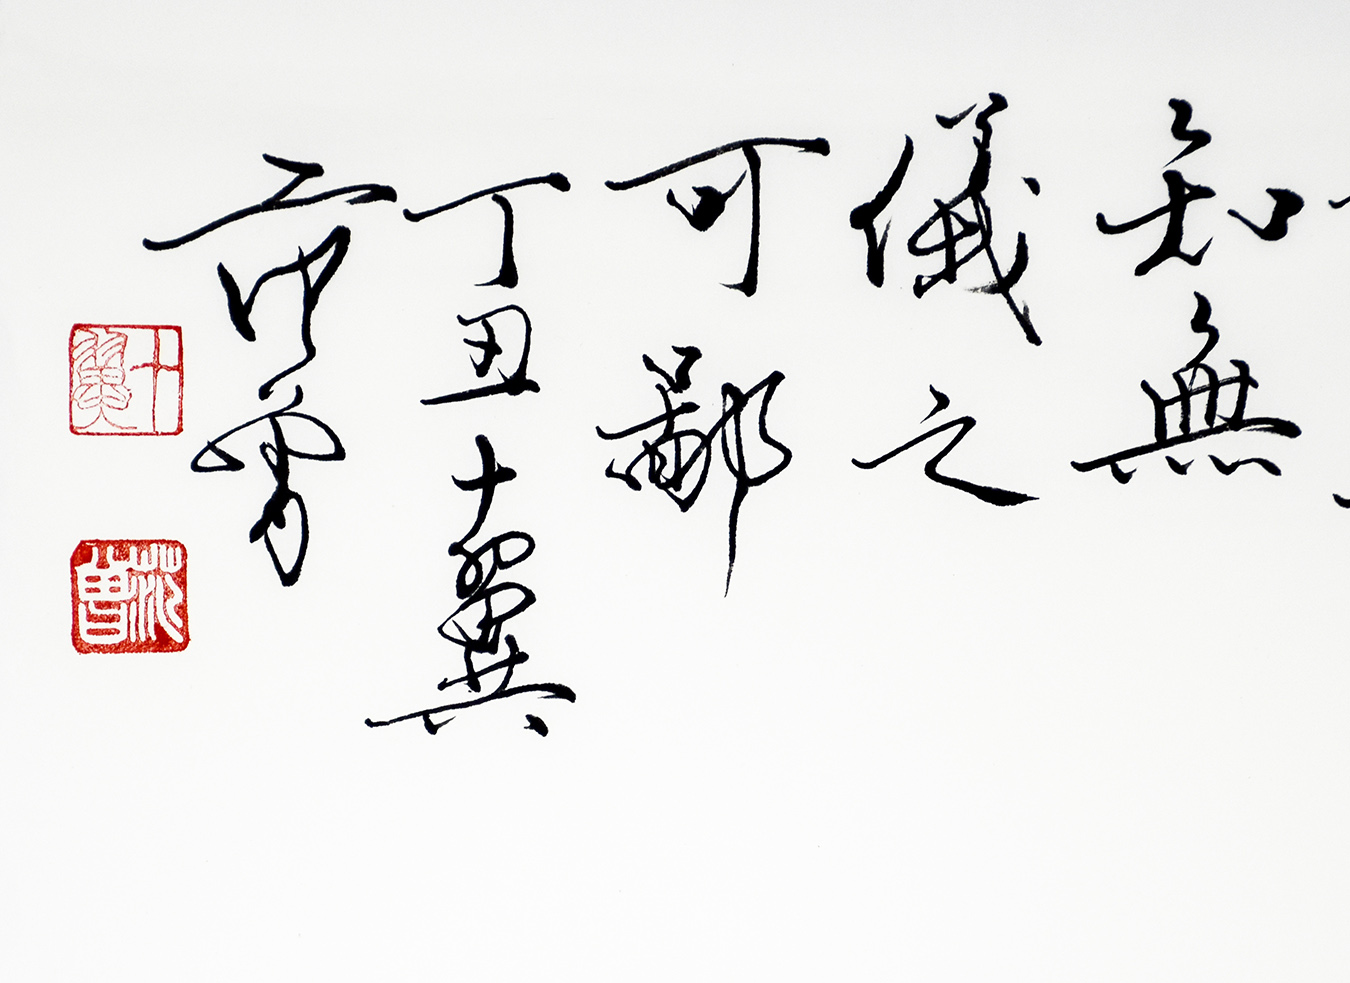 知無
儀之
可鄙
丁丑十翼
范曾
十翼
范曾